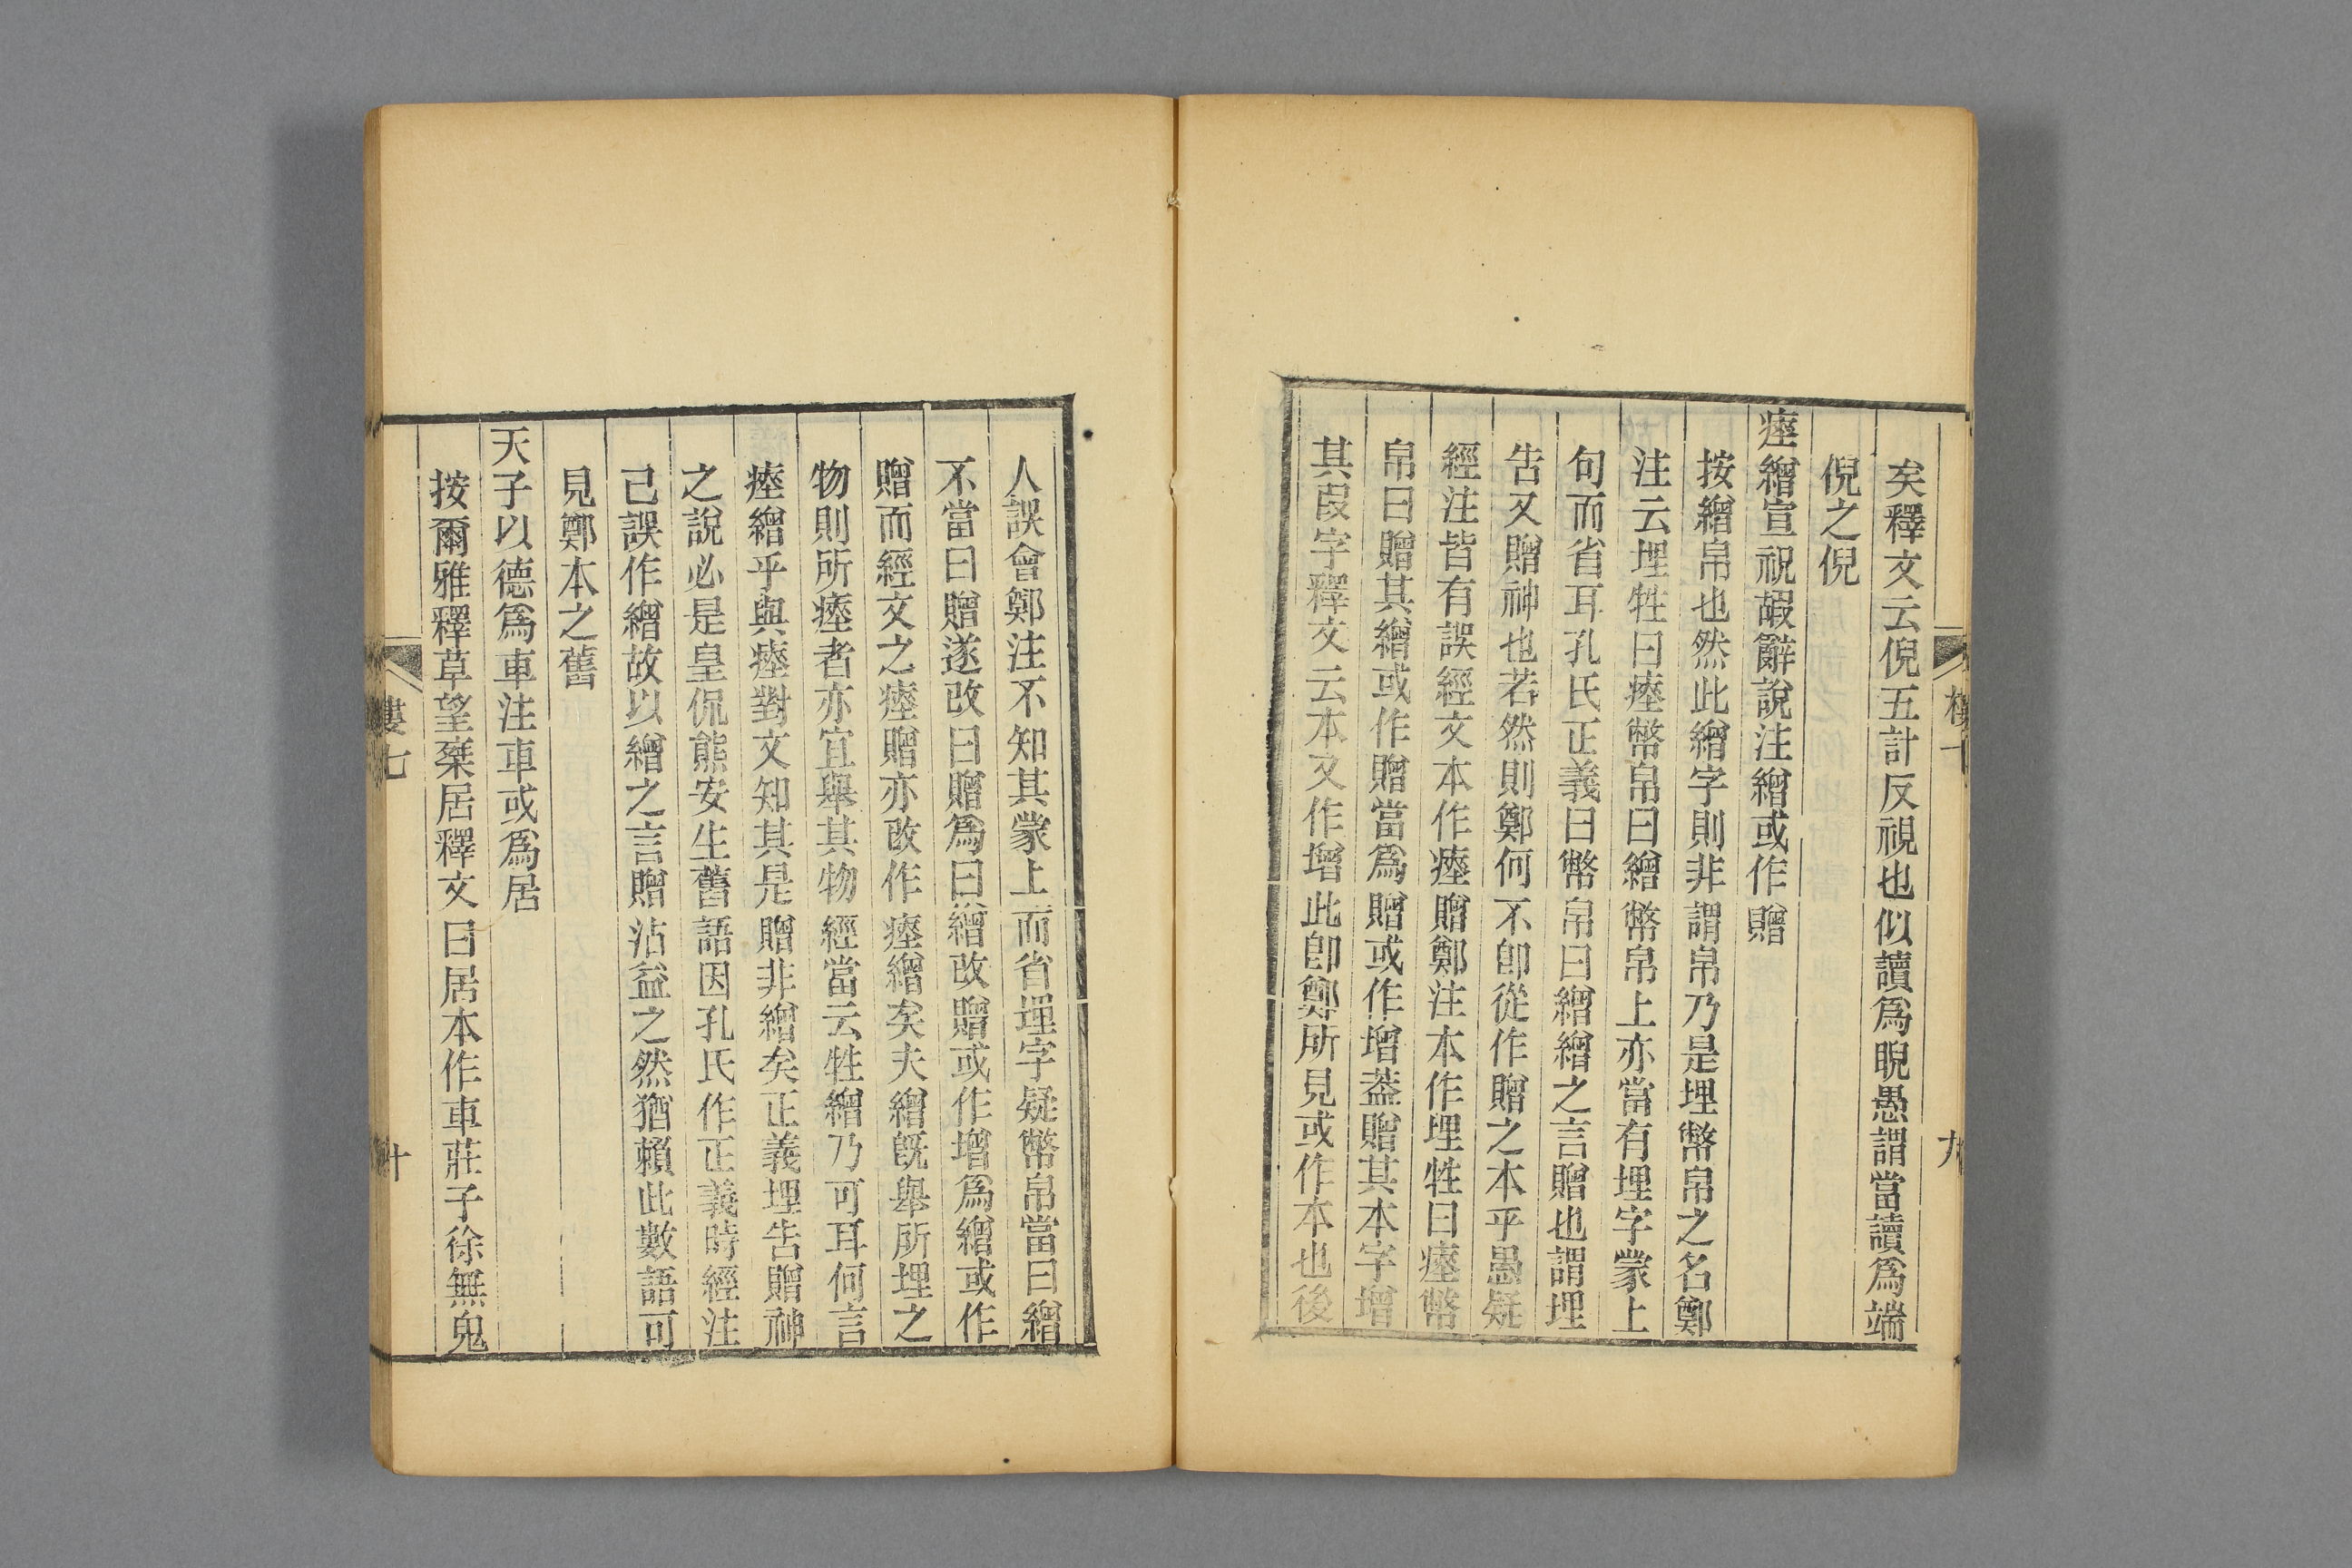 矣釋文云倪五計反視也似讀爲睨愚謂當讀爲端
倪之倪
瘞繒宣祝嘏辭說注繒或作贈
按繒帛也然此繒字則非謂帛乃是埋幣帛之名鄭
注云埋牲曰瘞幣帛曰繒幣帛上亦當有埋字蒙上
句而省耳孔氏正義曰幣帛曰繒繒之言贈也謂埋
告又贈神也若然則鄭何不卽從作贈之本乎愚疑
經注皆有誤經文本作瘞贈鄭注本作埋牲曰瘞幣
帛曰贈其繒或作贈當爲贈或作增葢贈其本字增
其叚字釋文云本又作增此卽鄭所見或作本也後
人誤會鄭注不知其蒙上而省埋字疑幣帛當曰繒
不當曰贈遂改曰贈爲曰繒改贈或作增爲繒或作
贈而經文之瘞贈亦改作瘞繒矣夫繒旣舉所埋之
物則所瘞者亦宜舉其物經當云牲繒乃可耳何言
瘞繒乎與瘞對文知其是贈非繒矣正義埋告贈神
之說必是皇侃熊安生舊語因孔氏作正義時經注
已誤作繒故以繒之言贈沾益之然猶賴此數語可
見鄭本之舊
天子以德爲車注車或爲居
按爾雅釋草望椉居釋文曰居本作車莊子徐無鬼
樓七
十